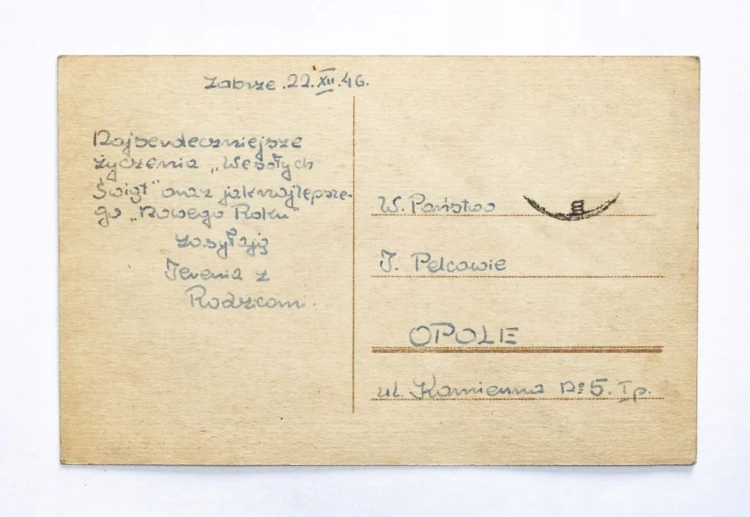 Zabrze .22.XII.46.
Najserdeczniejsze
życzenia „Wesołych
Świąt" oraz jaknajlepsze-
go „Nowego Roku"
zasyłają
Irenia z
Rodzicami.
W. Państwo
J. Pelcowie
OPOLE
ul. Kamienna No 5. I p.